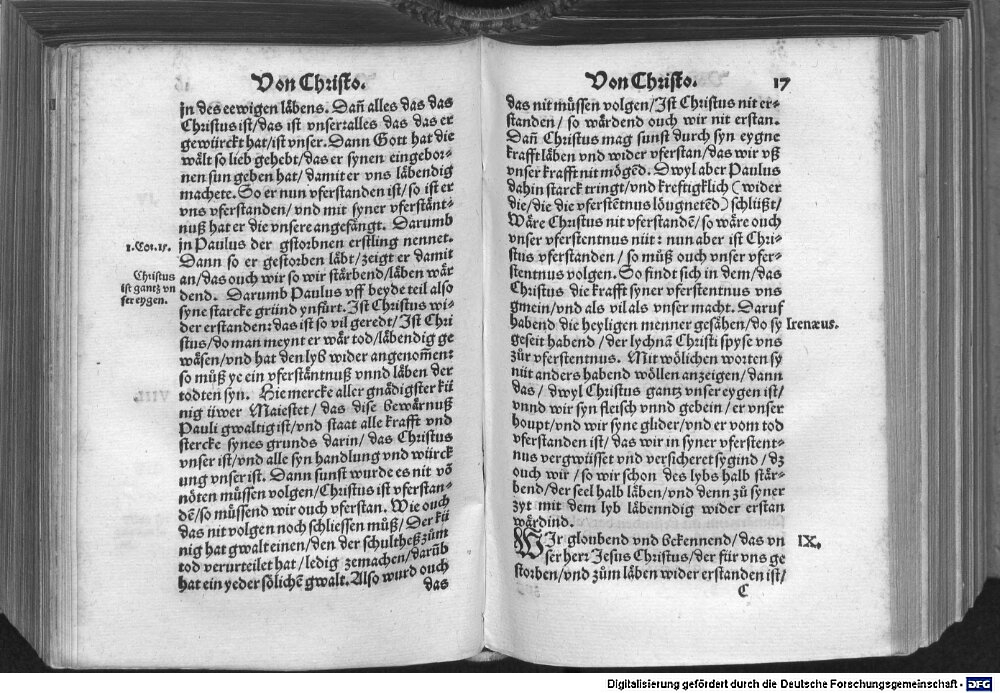 Von Christo.
jn des eewigen låbens. Dañ alles das das
Christus ist/das ist vnser: alles das das er
gewürckt hat/ist vnser. Dann Gott hat die
wålt so lieb gehebt/das er synen eingebor⸗
nen sun geben hat/damit er vns låbendig
machete. So er nun vferstanden ist/so ist er
vns vferstanden/vnd mit syner vferstånt⸗
nuß hat er die vnsere angefångt. Darumb
1.Cor.15.
jn Paulus der gstorbnen erstling nennet.
Dann so er gestorben låbt/zeigt er damit
Christus
ist gantz vn
ser eygen.
an/das ouch wir so wir stårbend/låben wår
dend. Darumb Paulus vff beyde teil also
syne starcke gründ ynfürt. Ist Christus wi⸗
der erstanden: das ist so vil geredt/Ist Chri
stus/do man meynt er wår tod/låbendig ge
wåsen/vnd hat den lyb wider angenom̃en:
so můß ye ein vferståntnuß vnnd låben der
todten syn. Hie mercke aller gnådigster kü
nig üwer Maiestet/das dise bewårnuß
Pauli gwaltig ist/vnd staat alle krafft vnd
stercke synes grunds darin/das Christus
vnser ist/vnd alle syn handlung vnd würck
ung vnser ist. Dann sunst wurde es nit võ
nöten müssen volgen/Christus ist vferstan⸗
dẽ/so müssend wir ouch vferstan. Wie ouch
das nit volgen noch schliessen můß/Der kü
nig hat gwalt einen/den der schultheß zům
tod verurteilet hat/ledig zemachen/darũb
hat ein yeder sölichẽ gwalt. Also wurd ouch
das
Von Christo. 17
das nit müssen volgen/Ist Christus nit er⸗
standen/so wårdend ouch wir nit erstan.
Dañ Christus mag sunst durch syn eygne
krafft låben vnd wider vferstan/das wir vß
vnser krafft nit mögẽd. Dwyl aber Paulus
dahin starck tringt/vnd kreftigklich (wider
die/die die vferstẽtnus löugnetẽd) schlüßt/
Wåre Christus nit vferstandẽ/so wåre ouch
vnser vferstentnus nüt: nun aber ist Chri⸗
stus vferstanden/so můß ouch vnser vfer⸗
stentnus volgen. So findt sich in dem/das
Christus die krafft syner vferstentnus vns
gmein/vnd als vil als vnser macht. Daruf
habend die heyligen menner gesåhen/do sy
Irenæus.
geseit habend/der lychnã Christi spyse vns
zůr vferstentnus. Mit wölichen worten sy
nüt anders habend wöllen anzeigen/dann
das/dwyl Christus gantz vnser eygen ist/
vnnd wir syn fleisch vnnd gebein/er vnser
houpt/vnd wir syne glider/vnd er vom tod
vferstanden ist/das wir in syner vferstent⸗
nus vergwüsset vnd versicheret sygind/dz
ouch wir/so wir schon des lybs halb står⸗
bend/der seel halb låben/vnd denn zů syner
zyt mit dem lyb låbenndig wider erstan
wårdind.
WIr gloubend vnd bekennend/das vn
IX.
ser herr Jesus Christus/der für vns ge
storben/vnd zům låben wider erstanden ist/
C
Digitalisierung gefördert durch die Deutsche Forschungsgemeinschaft - DFG